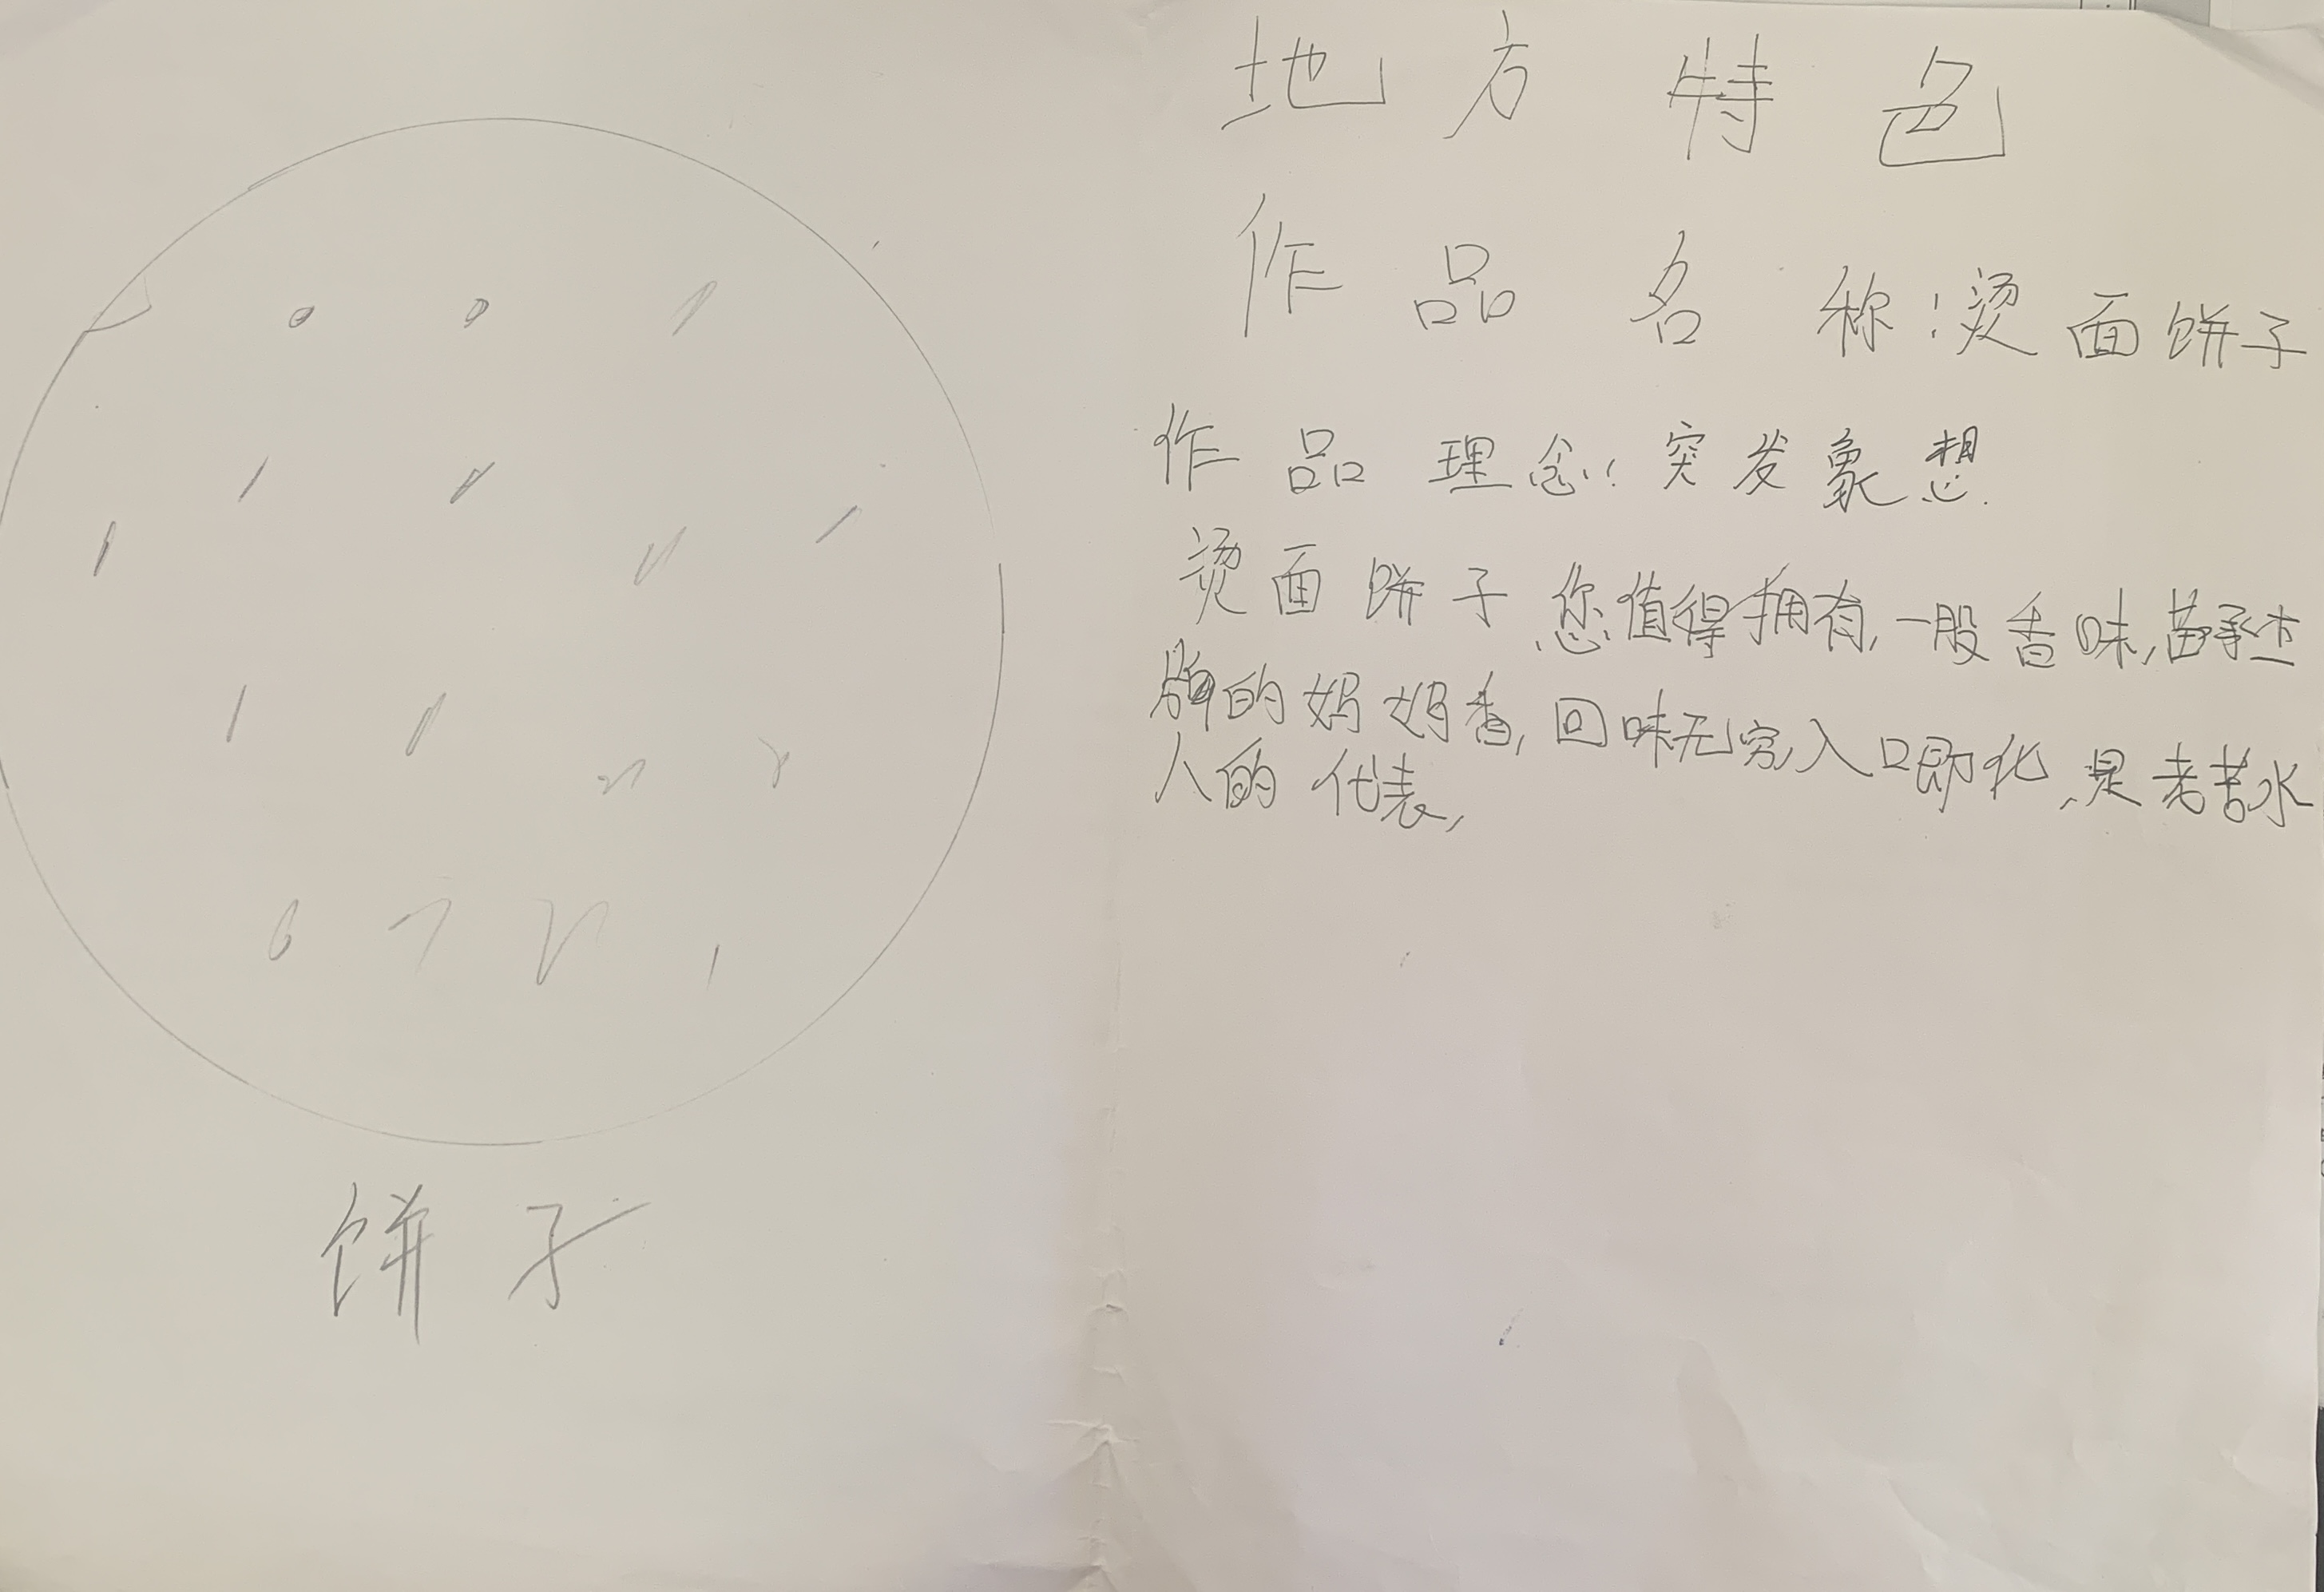 地方特色
作品名称:烫面饼子
作品理念:突发象想.
烫面饼子,您值得拥有,一股香味,
的妈妈香,回味无穷,入口即化,是老苦水
人的代表,
饼子